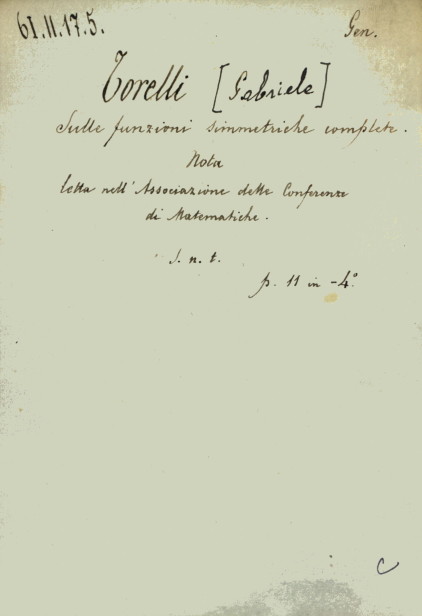 61.11.17.5.
Gen.
Torelli [Gabriele]
Sulle funzioni simmetriche complete.
Nota
letta nell'Associazione delle Conferenze
di Matematiche.
S. n. t.
p. 11 in -4°
C